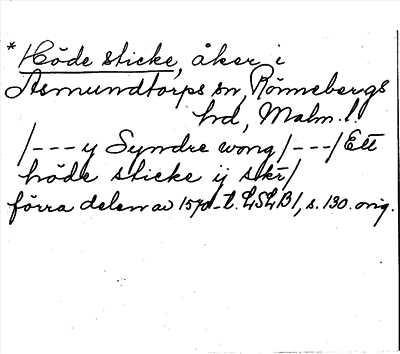 * Höde sticke, åker i
Asmundtorps sn, Rönnebergs
hd, Malm. l.
/--- y Syndre wong /---/ Ett
höde sticke ij skr/
förra delen av 1570-t. LSLB1, s. 130. orig.